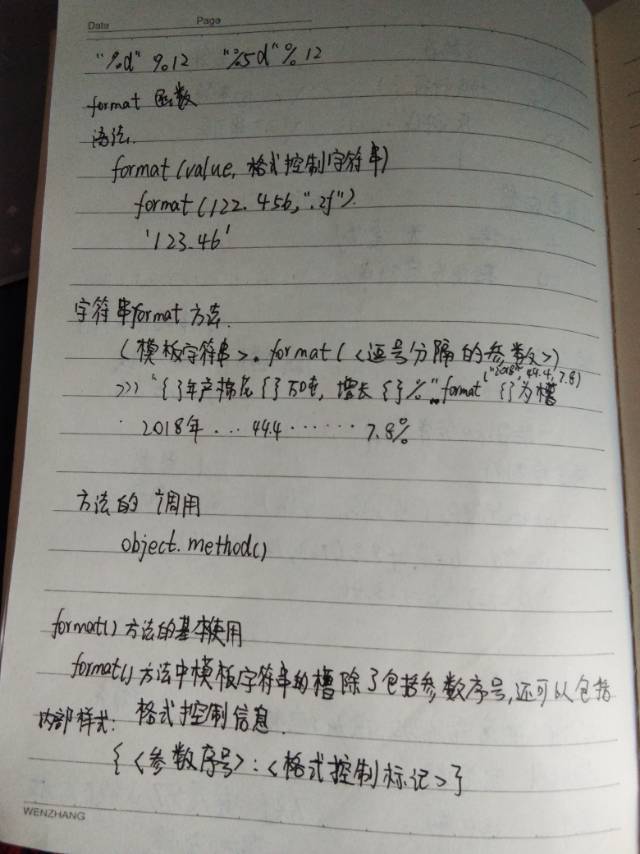 Date Page
"%d" %12 "%5d" % 12
format 函数
语法
format (value, 格式控制字符串)
format (122.456, ".2f")
'123.46'
字符串format 方法
<模板字符串>.format(<逗号分隔的参数>)
("2018", 44.4, 7.8)
>>> "{}年产棉花{}万吨, 增长{}%".format {}为槽
2018年 ... 44.4 ...... 7.8%
方法的调用
object.method()
format()方法的基本使用
format()方法中模板字符串的槽除了包括参数序号,还可以包括
内部样式: 格式控制信息.
{<参数序号>:<格式控制标记>}
WENZHANG